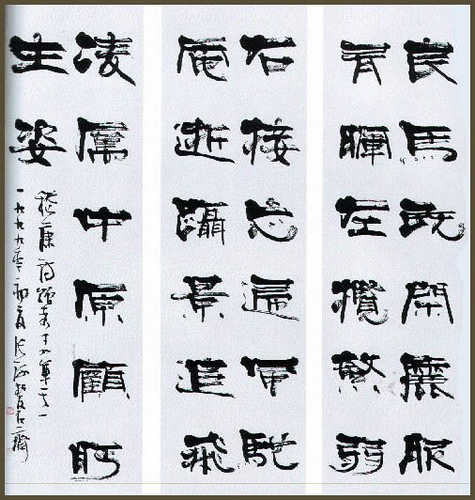 良馬既閑麗服
有暉左攬繁弱
右接忘歸風馳
電逝躡景追飛
凌厲中原顧眄
生姿
嵇康詩贈秀才
一九九九年初夏